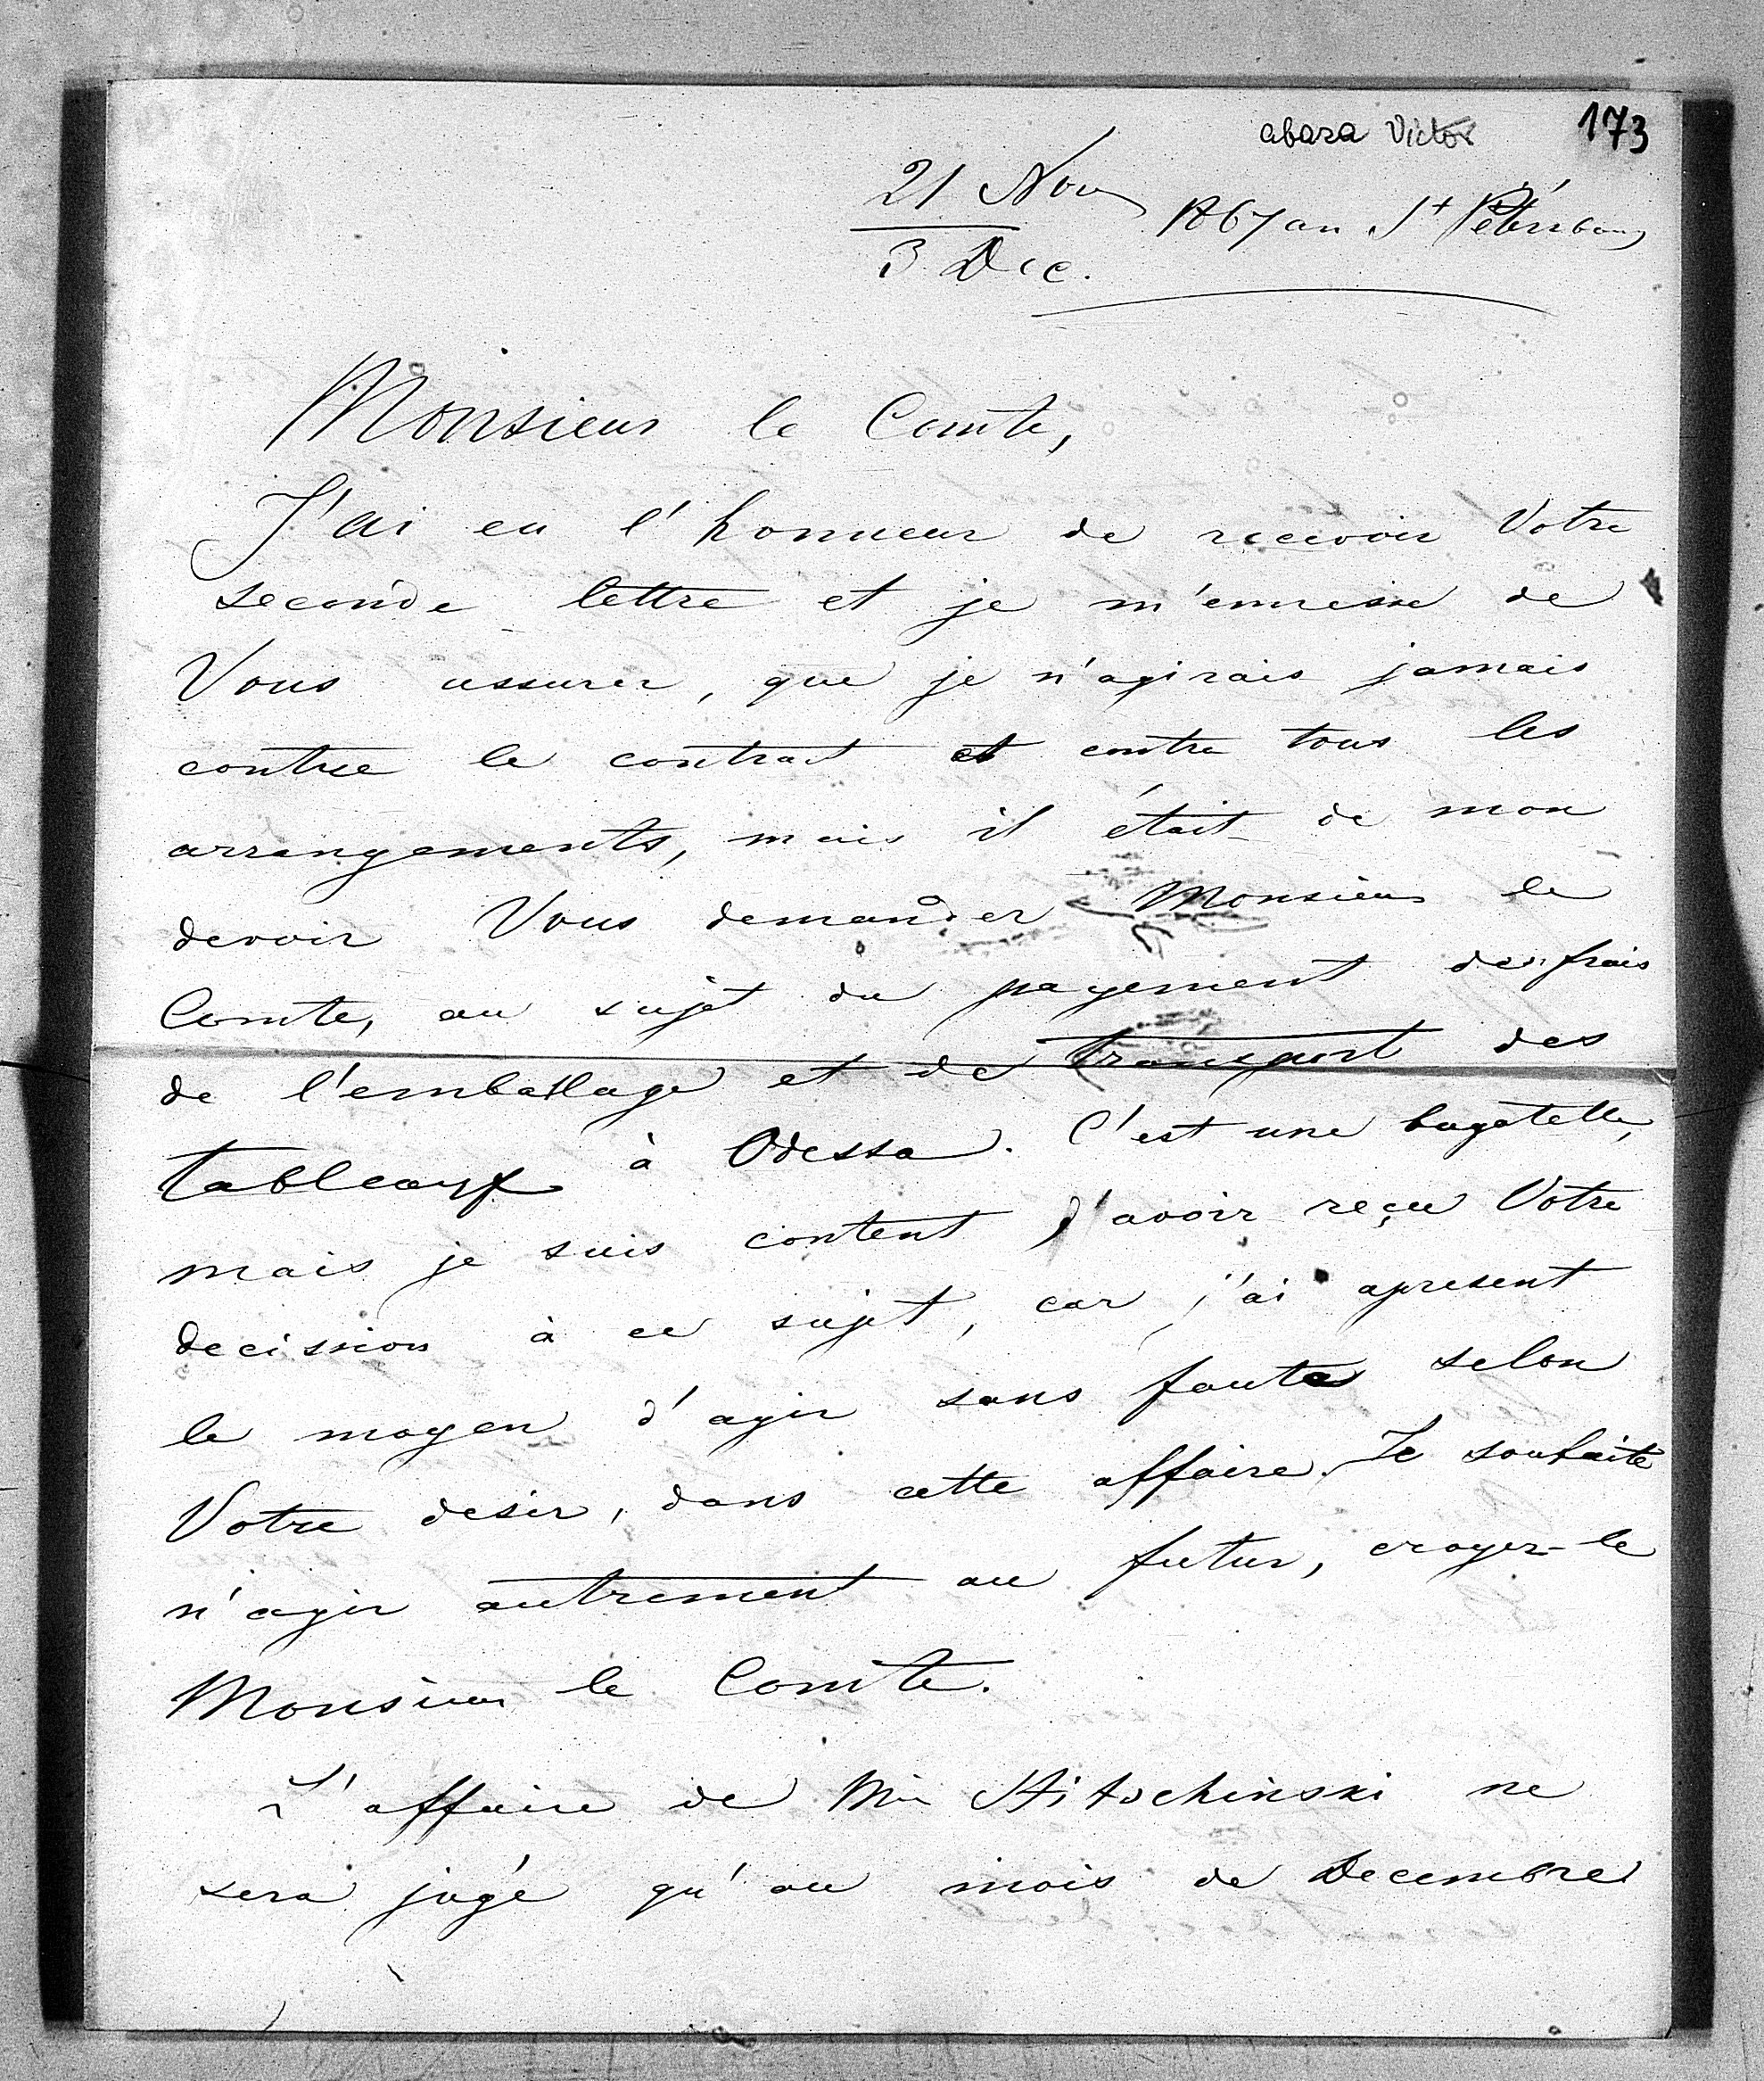 abaza Victor 173
21 Nov
3 Dec. 1867 an St Pétersbourg
Monsieur le Comte,
J'ai eu l'honneur de recevoir Votre
seconde lettre et je m'empresse de
Vous assurer, que je n'agirais jamais
contre le contrat et contre tous les
arrangements, mais il était de mon
devoir Vous demander Monsieur le
Comte, au sujet du payement des frais
de l'emballage et de transport des
tableaux à Odessa. C'est une bagatelle,
mais je suis content d'avoir reçu Votre
decision à ce sujet, car j'ai apresent
le moyen d'agir sans fautes selon
Votre desir, dans cette affaire. Je souhaite
n'agir autrement au futur, croyez-le
Monsieur le Comte.
L'affaire de Mr Hitschinski ne
sera jugé qu'au mois de Decembre